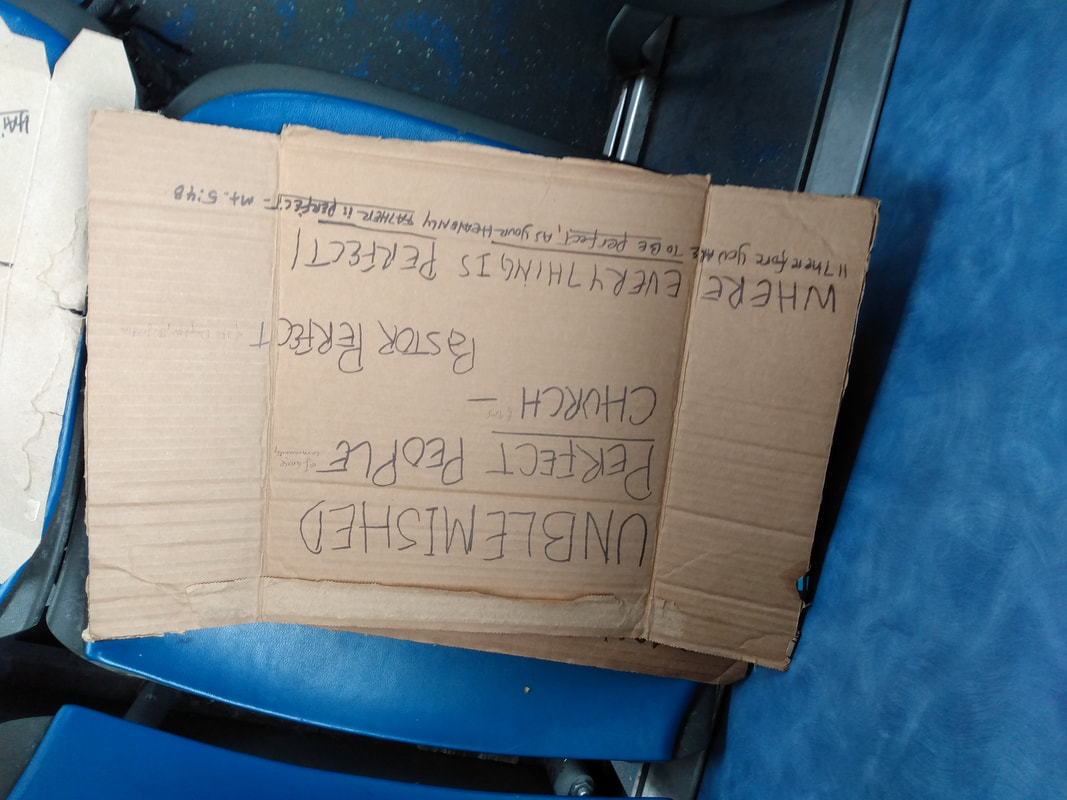 UNBLEMISHED
PERFECT PEOPLE of love community
CHURCH –
PASTOR PERFECT
WHERE EVERYTHING IS PERFECT!
"Therefore you ARE TO BE perfect, AS your HEAVENLY FATHER is PERFECT - Mt. 5:48
HAi